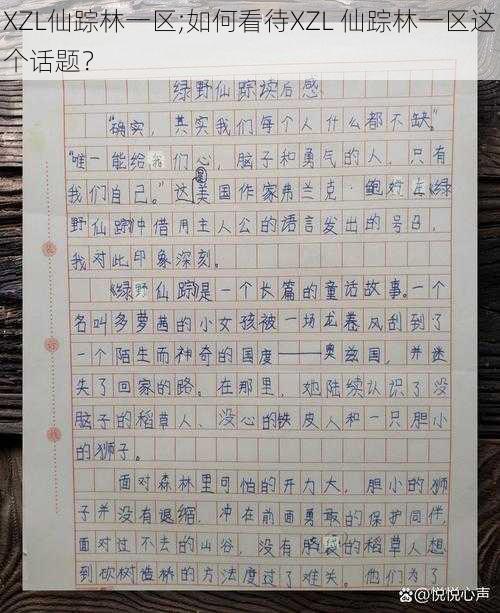 XZL仙踪林一区;如何看待XZL 仙踪林一区这
个话题？
绿野仙踪读后感
“确实，其实我们每个人什么都不缺。”
“唯一能给我们心，脑子和勇气的人，只有
我们自己。”这美国作家弗兰克·鲍姆在《绿
野仙踪》中借用主人公的语言发出的号召，
我对此印象深刻。
《绿野仙踪》是一个长篇的童话故事。一个
名叫多萝茜的小女孩被一场龙卷风刮到了
一个陌生而神奇的国度——奥兹国，并迷
失了回家的路。在那里，她陆续认识了没
脑子的稻草人、没心的铁皮人和一只胆小
的狮子。
面对森林里可怕的开力大，胆小的狮
子并没有退缩，冲在前面勇敢的保护同伴，
面对过不去的山谷，没有脑袋的稻草人想
到砍树造桥的方法度过了难关。他们为了
@悦悦心声